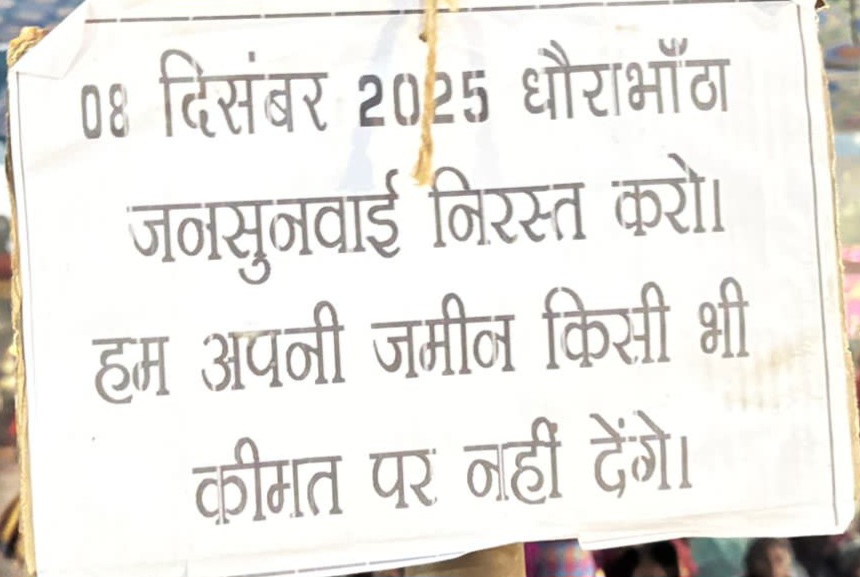 08 दिसंबर 2025 धौराभाँठा
जनसुनवाई निरस्त करो।
हम अपनी जमीन किसी भी
कीमत पर नहीं देंगे।